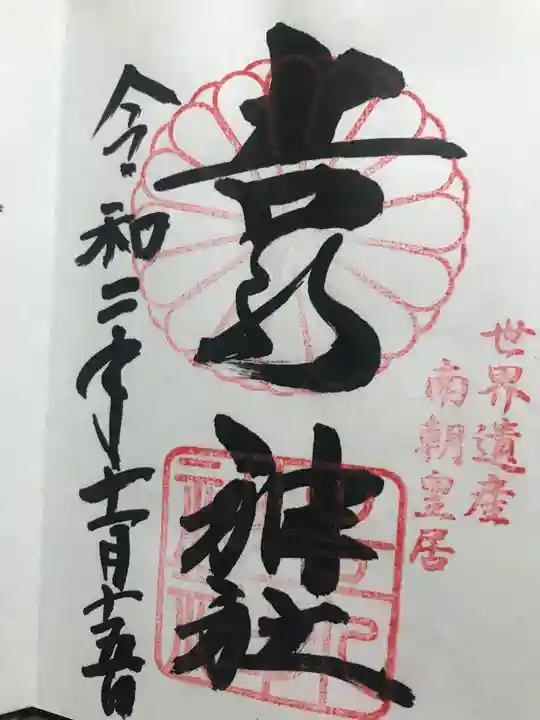 世界遺産
南朝皇居
吉水神社
令和二年十一月十五日